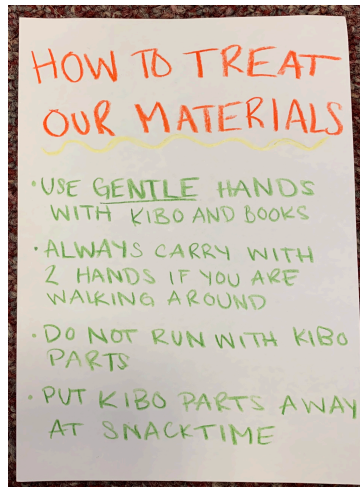 HOW TO TREAT
OUR MATERIALS
• USE GENTLE HANDS
WITH KIBO AND BOOKS
• ALWAYS CARRY WITH
2 HANDS IF YOU ARE
WALKING AROUND
• DO NOT RUN WITH KIBO
PARTS
• PUT KIBO PARTS AWAY
AT SNACKTIME